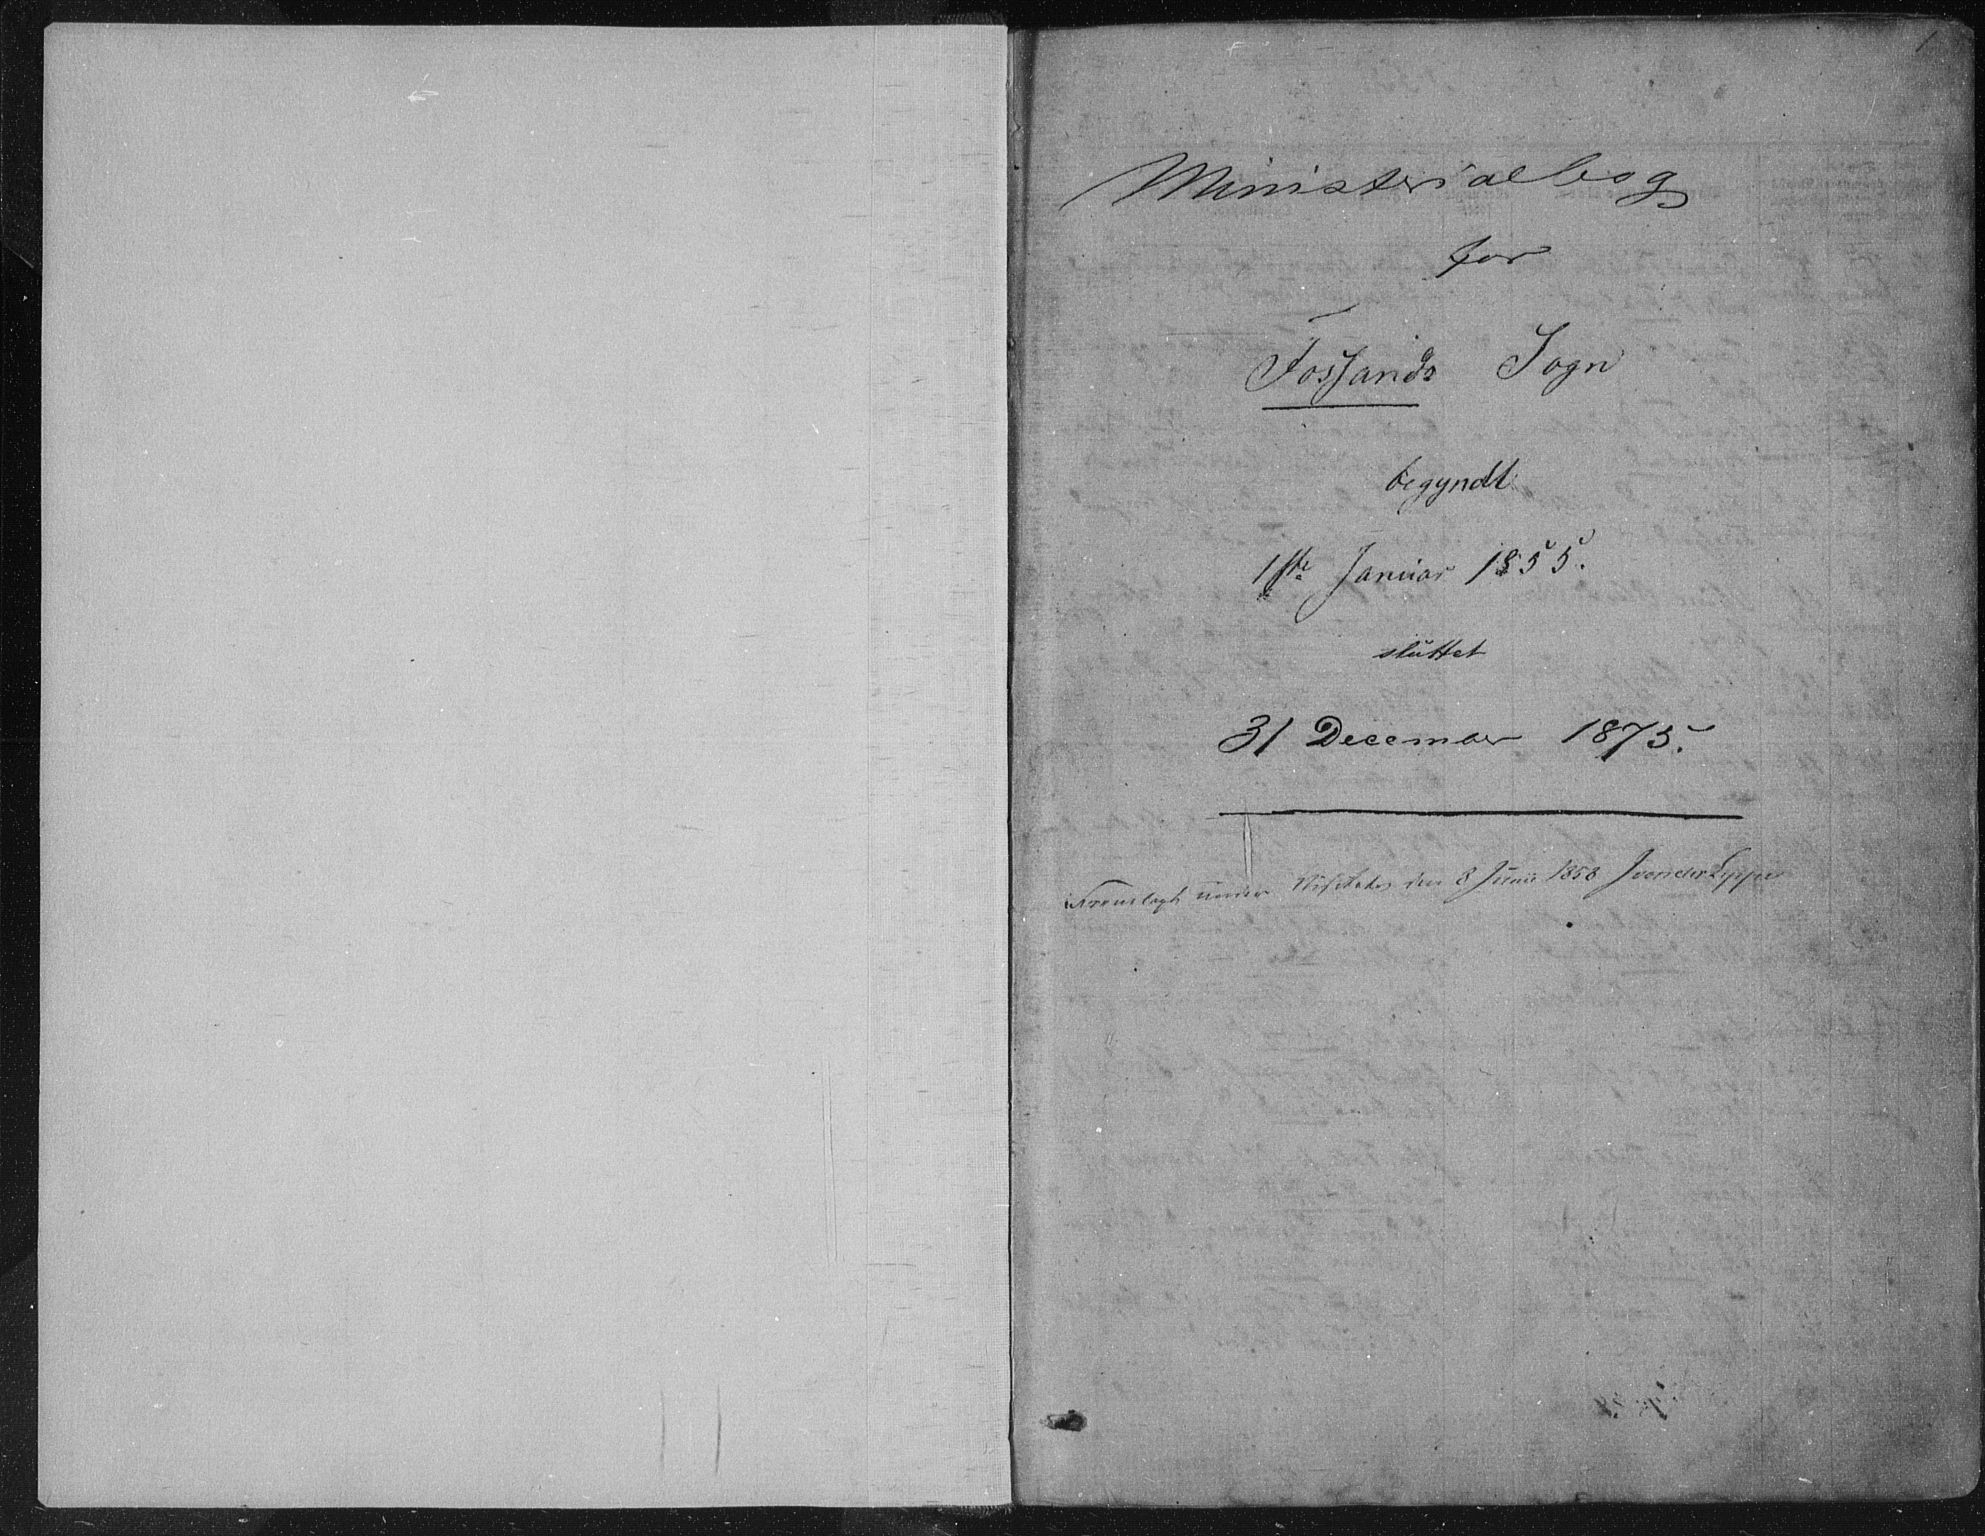 1
Ministerialbog
for
Fossands Sogn
begyndt
1ste Januar 1855.
sluttet
31 December 1875.
Fremlagt under Visitats den 8 Juni 1858 J von der Lippe